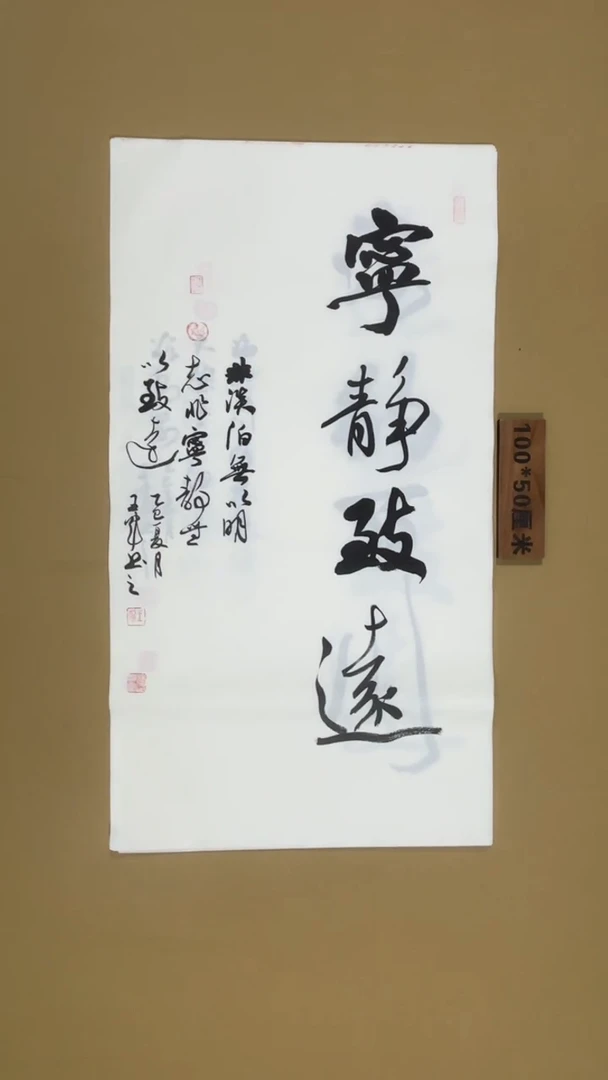 寧靜致遠
非淡泊無以明
志非寧靜無
以致遠
乙巳夏月
書之
100*50厘米